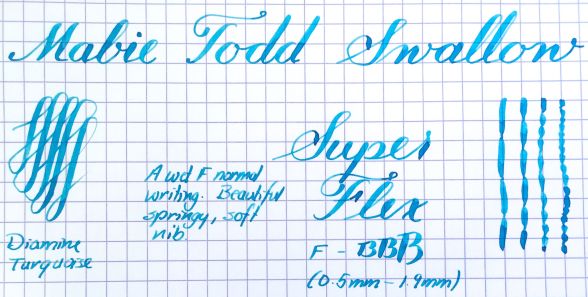 Mabie Todd Swallow
A wd F normal
writing. Beautiful
springy, soft
nib
Super
Flex
F - BBB
(0.5mm - 1.9mm)
Diamine
Turquoise